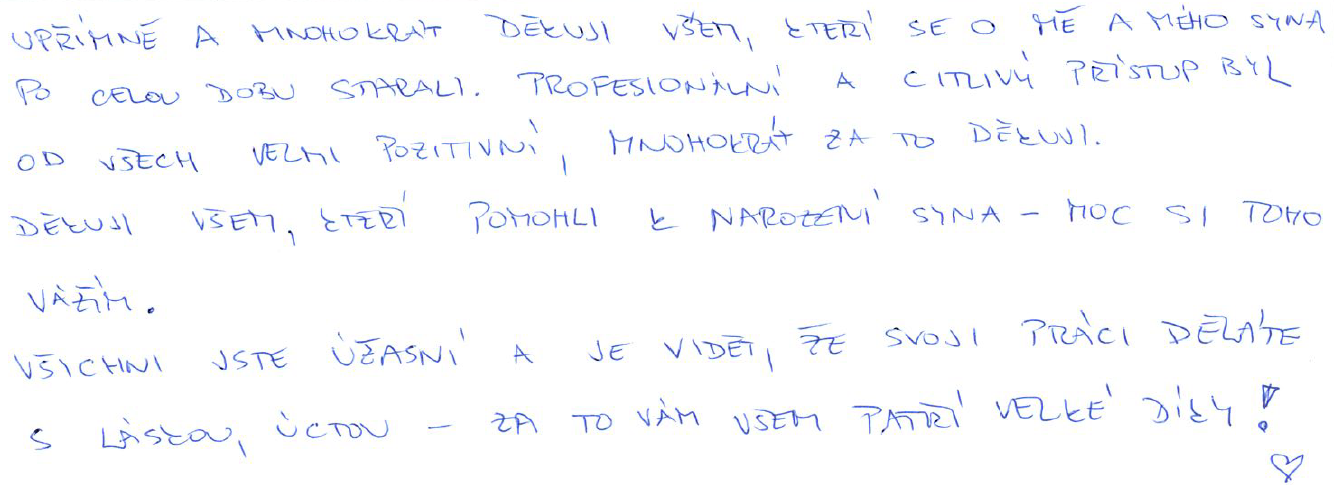 UPŘÍMNĚ A MNOHOKRÁT DĚKUJI VŠEM, KTEŘÍ SE O MĚ A MÉHO SYNA
PO CELOU DOBU STARALI. PROFESIONÁLNÍ A CITLIVÝ PŘÍSTUP BYL
OD VŠECH VELMI POZITIVNÍ, MNOHOKRÁT ZA TO DĚKUJI.
DĚKUJI VŠEM, KTEŘÍ POMOHLI K NAROZENÍ SYNA – MOC SI TOHO
VÁŽÍM.
VŠICHNI JSTE ÚŽASNÍ A JE VIDĚT, ŽE SVOJI PRÁCI DĚLÁTE
S LÁSKOU, ÚCTOU – ZA TO VÁM VŠEM PATŘÍ VELKÉ DÍKY!
♡